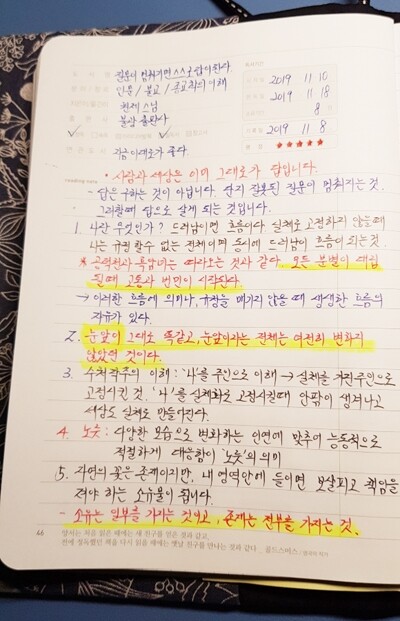 질문이 멈춰지면 스스로 답이 된다.
2019 11 10
인문 / 불교 / 종교학의 이해
2019 11 18
원제 스님
8
불광 출판사
2019 11 8
지금 이대로가 좋다.
★★★★★
* 사람과 세상은 이미 그대로가 답입니다.
- 답은 구하는 것이 아닙니다. 단지 잘못된 질문이 멈춰지는 것.
그러할 때 답으로 살게 되는 것입니다.
1. 나란 무엇인가? 드러남이면 흐름이다. 실체로 고정하지 않을때
나는 규정할 수 없는 전체이며 동시에 드러남이 흐름이 되는 것
* 공덕천과 흑암녀는 따라오는 것과 같다. 모든 분별이 대립
될때 고통과 번민이 시작된다.
→ 이러한 흐름에 의미나, 규정을 매기지 않을 때 생생한 흐름의
자유가 있다.
2. 눈앞이 그대로 똑같고, 눈앞이라는 전체는 여전히 변화지
않았던 것이다.
3. 수처작주의 이해 : '나'를 주인으로 이해 → 실체를 가진 주인으로
고정시킨 것. '나'를 실체화로 고정시킬때 안팎이 생겨나고
세상도 실체로 만들어진다.
4. 노릇 : 다양한 모습으로 변화하는 인연에 맞추어 능동적으로
적절하게 대응함이 '노릇'의 의미
5. 자연의 꽃은 존재이지만, 내 영역안에 들이면 보살피고 책임을
져야 하는 소유물이 됩니다.
- 소유는 일부를 가지는 것이고, 존재는 전부를 가지는 것.
46
양서는 처음 읽을 때에는 새 친구를 얻은 것과 같고,
전에 정독했던 책을 다시 읽을 때에는 옛날 친구를 만나는 것과 같다 _ 골드스미스